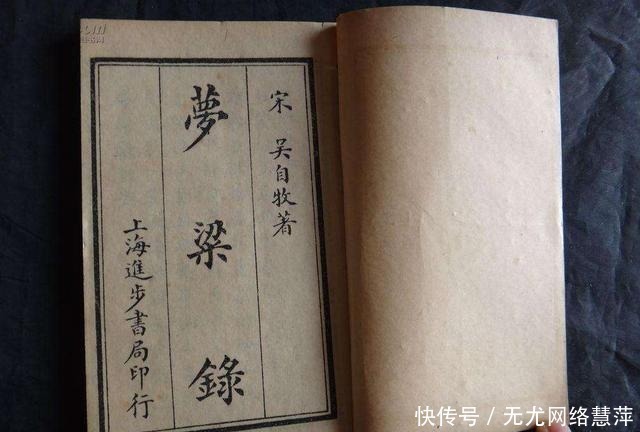 宋 吴自牧著
夢粱錄
上海進步書局印行
快传号／无尤网络慧萍